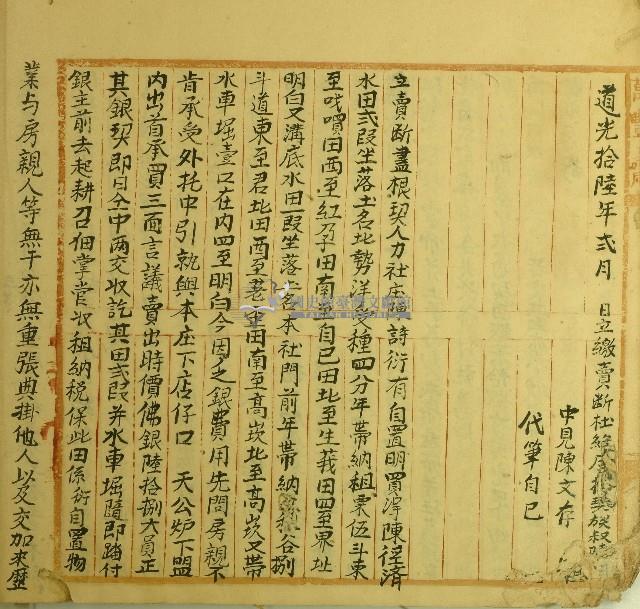 道光拾陸年弍月 日立繳賣斷杜絕尽根契族叔
中見陳文存
代筆自己
立賣斷盡根契人力社庄 詩衍有自置明買 陳徑濟
水田弍段坐落土名北勢洋 種四分年帶納租粟伍斗東
至 田西至紅 田南至自已田北至生莪田四至界址
明白又溝底水田一段坐落土名本社門前年帶納 谷捌
斗道東至君北田西至 田南至高崁北至高崁又帶
水車堀壹口在内四至明白今因乏銀費用先問房親不
肯承受外托中引就與本庄下店仔口 天公炉下盟
内出首承買三面言議賣出時價佛銀陸拾捌大員正
其銀契即日仝中两交收訖其田弍段并水車堀隨即踏付
銀主前去起耕召佃掌管收租納税保此田係衍自置物
業与房親人等無干亦無重張典掛他人以及交加來歷